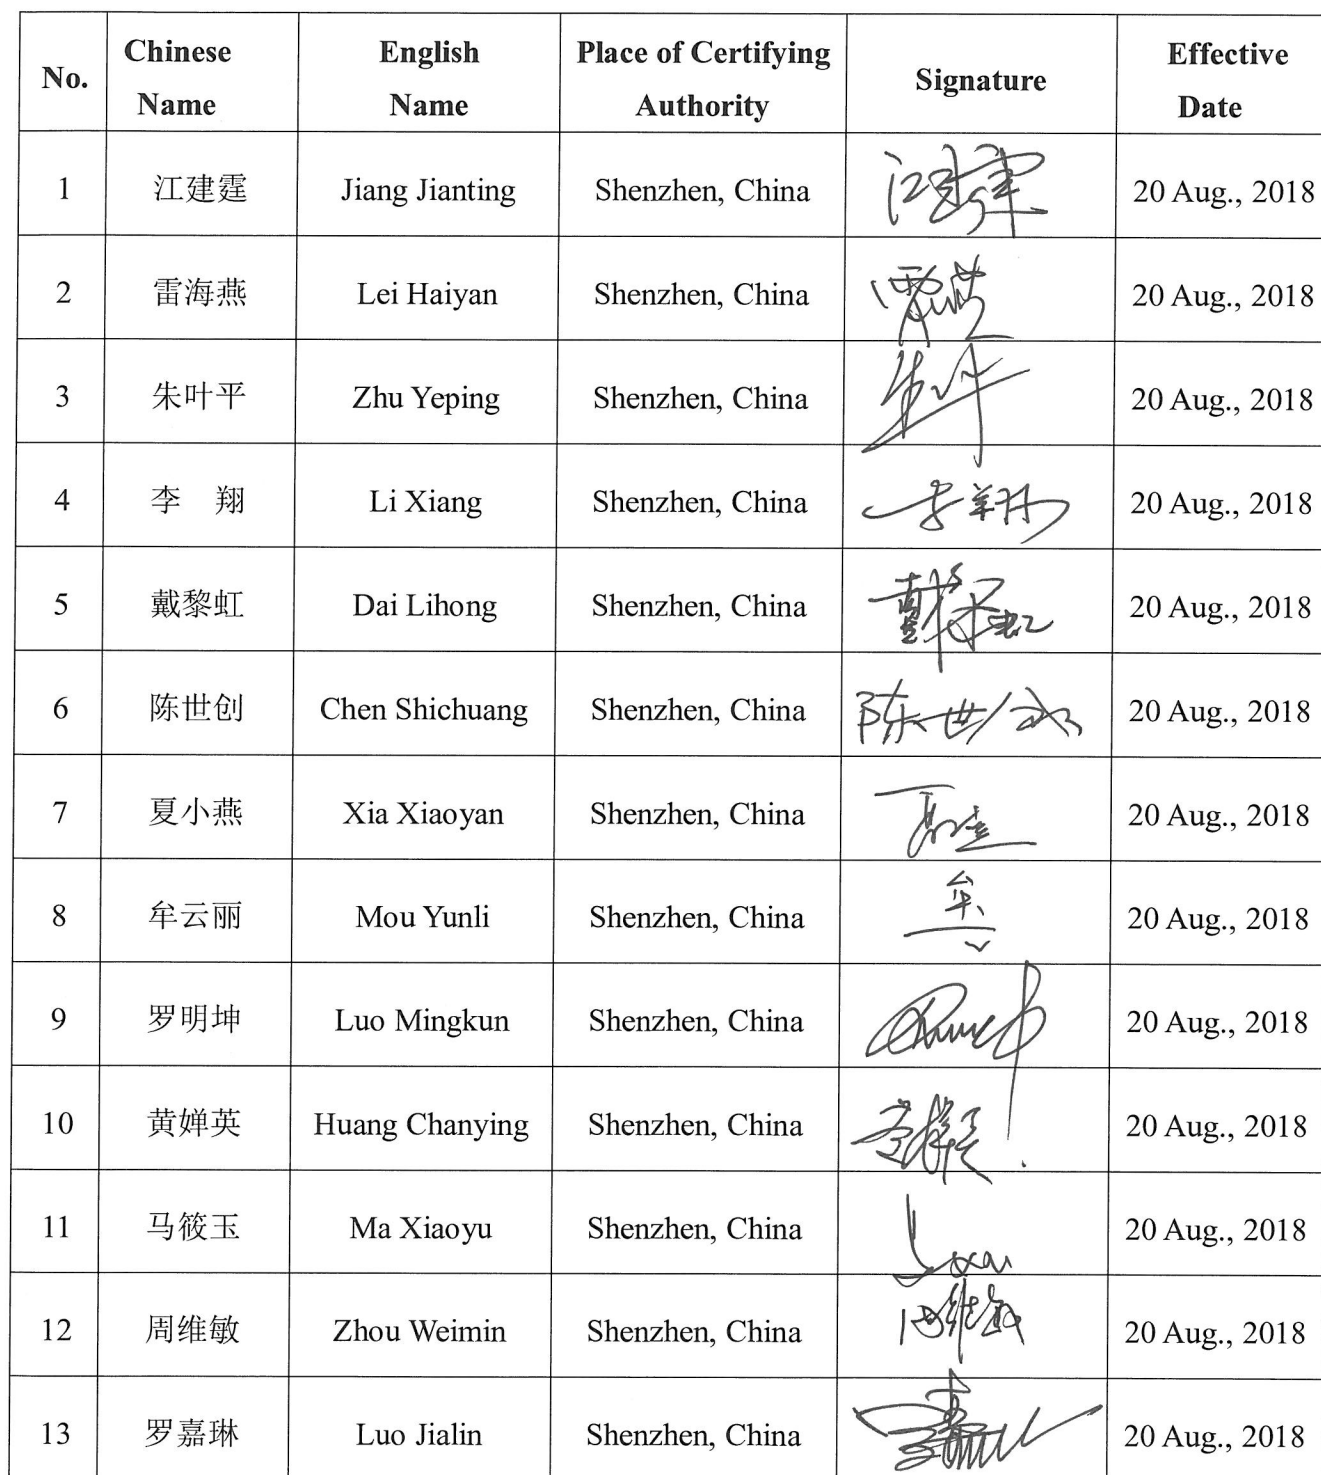 No. Chinese Name English Name Place of Certifying Authority Signature Effective Date
1 江建霆 Jiang Jianting Shenzhen, China 20 Aug., 2018
2 雷海燕 Lei Haiyan Shenzhen, China 20 Aug., 2018
3 朱叶平 Zhu Yeping Shenzhen, China 20 Aug., 2018
4 李 翔 Li Xiang Shenzhen, China 李翔 20 Aug., 2018
5 戴黎虹 Dai Lihong Shenzhen, China 20 Aug., 2018
6 陈世创 Chen Shichuang Shenzhen, China 陈世创 20 Aug., 2018
7 夏小燕 Xia Xiaoyan Shenzhen, China 20 Aug., 2018
8 牟云丽 Mou Yunli Shenzhen, China 20 Aug., 2018
9 罗明坤 Luo Mingkun Shenzhen, China 20 Aug., 2018
10 黄婵英 Huang Chanying Shenzhen, China 20 Aug., 2018
11 马筱玉 Ma Xiaoyu Shenzhen, China 20 Aug., 2018
12 周维敏 Zhou Weimin Shenzhen, China 周维敏 20 Aug., 2018
13 罗嘉琳 Luo Jialin Shenzhen, China 20 Aug., 2018